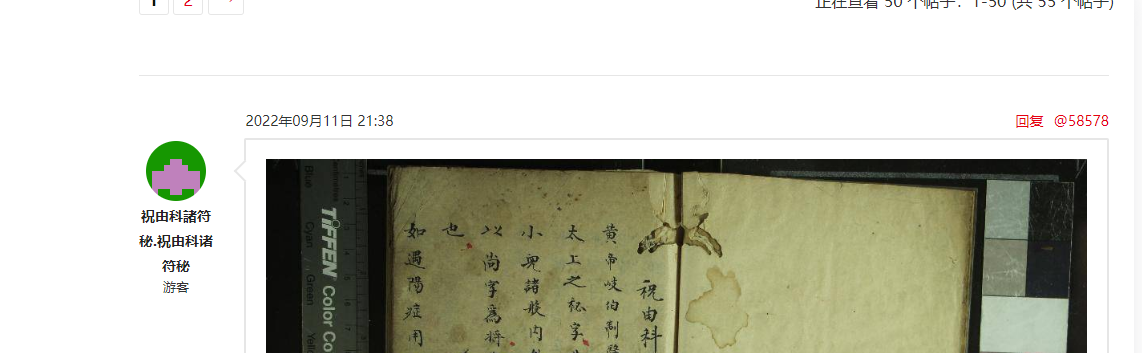 1 2 →
正在查看 50 个帖子：1-50 (共 55 个帖子)
2022年09月11日 21:38
回复 @58578
祝由科諸符
秘.祝由科诸
符秘
游客
祝由科
黄帝岐伯制
太上之秘字
小兒諸般内
以尚字爲將
也
如遇陽症用
TIFFEN Color Co
Blue
Cyan
Green
Yell